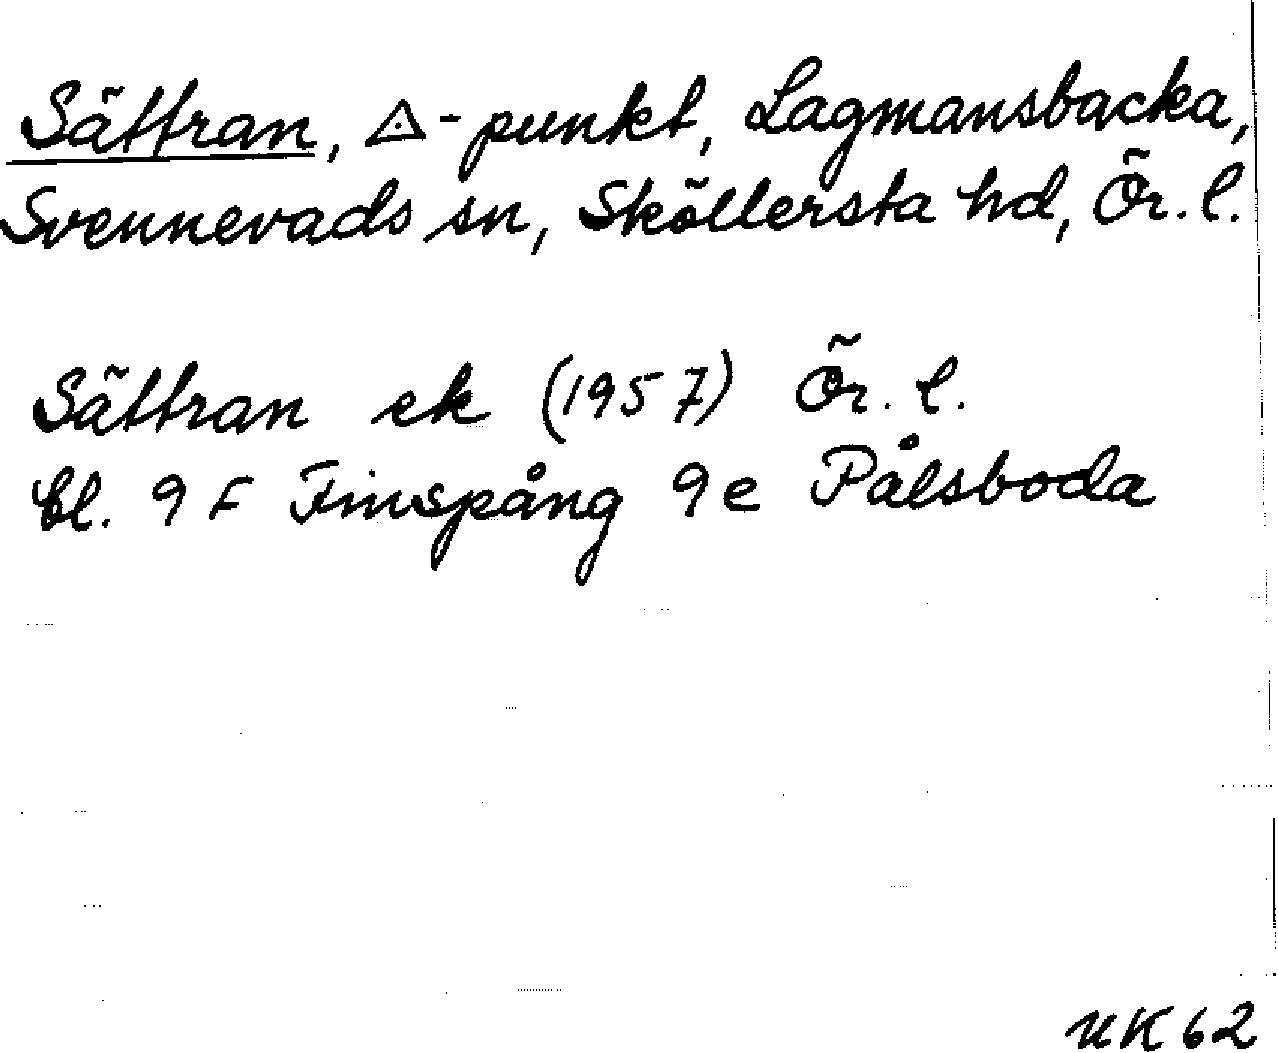 Sättran, △-punkt, Lagmansbacka,
Svennevads sn, Sköllersta hd, Ör. l.
Sättran ek (1957) Ör. l.
bl. 9 F Finspång 9e Pålsboda
UK 62